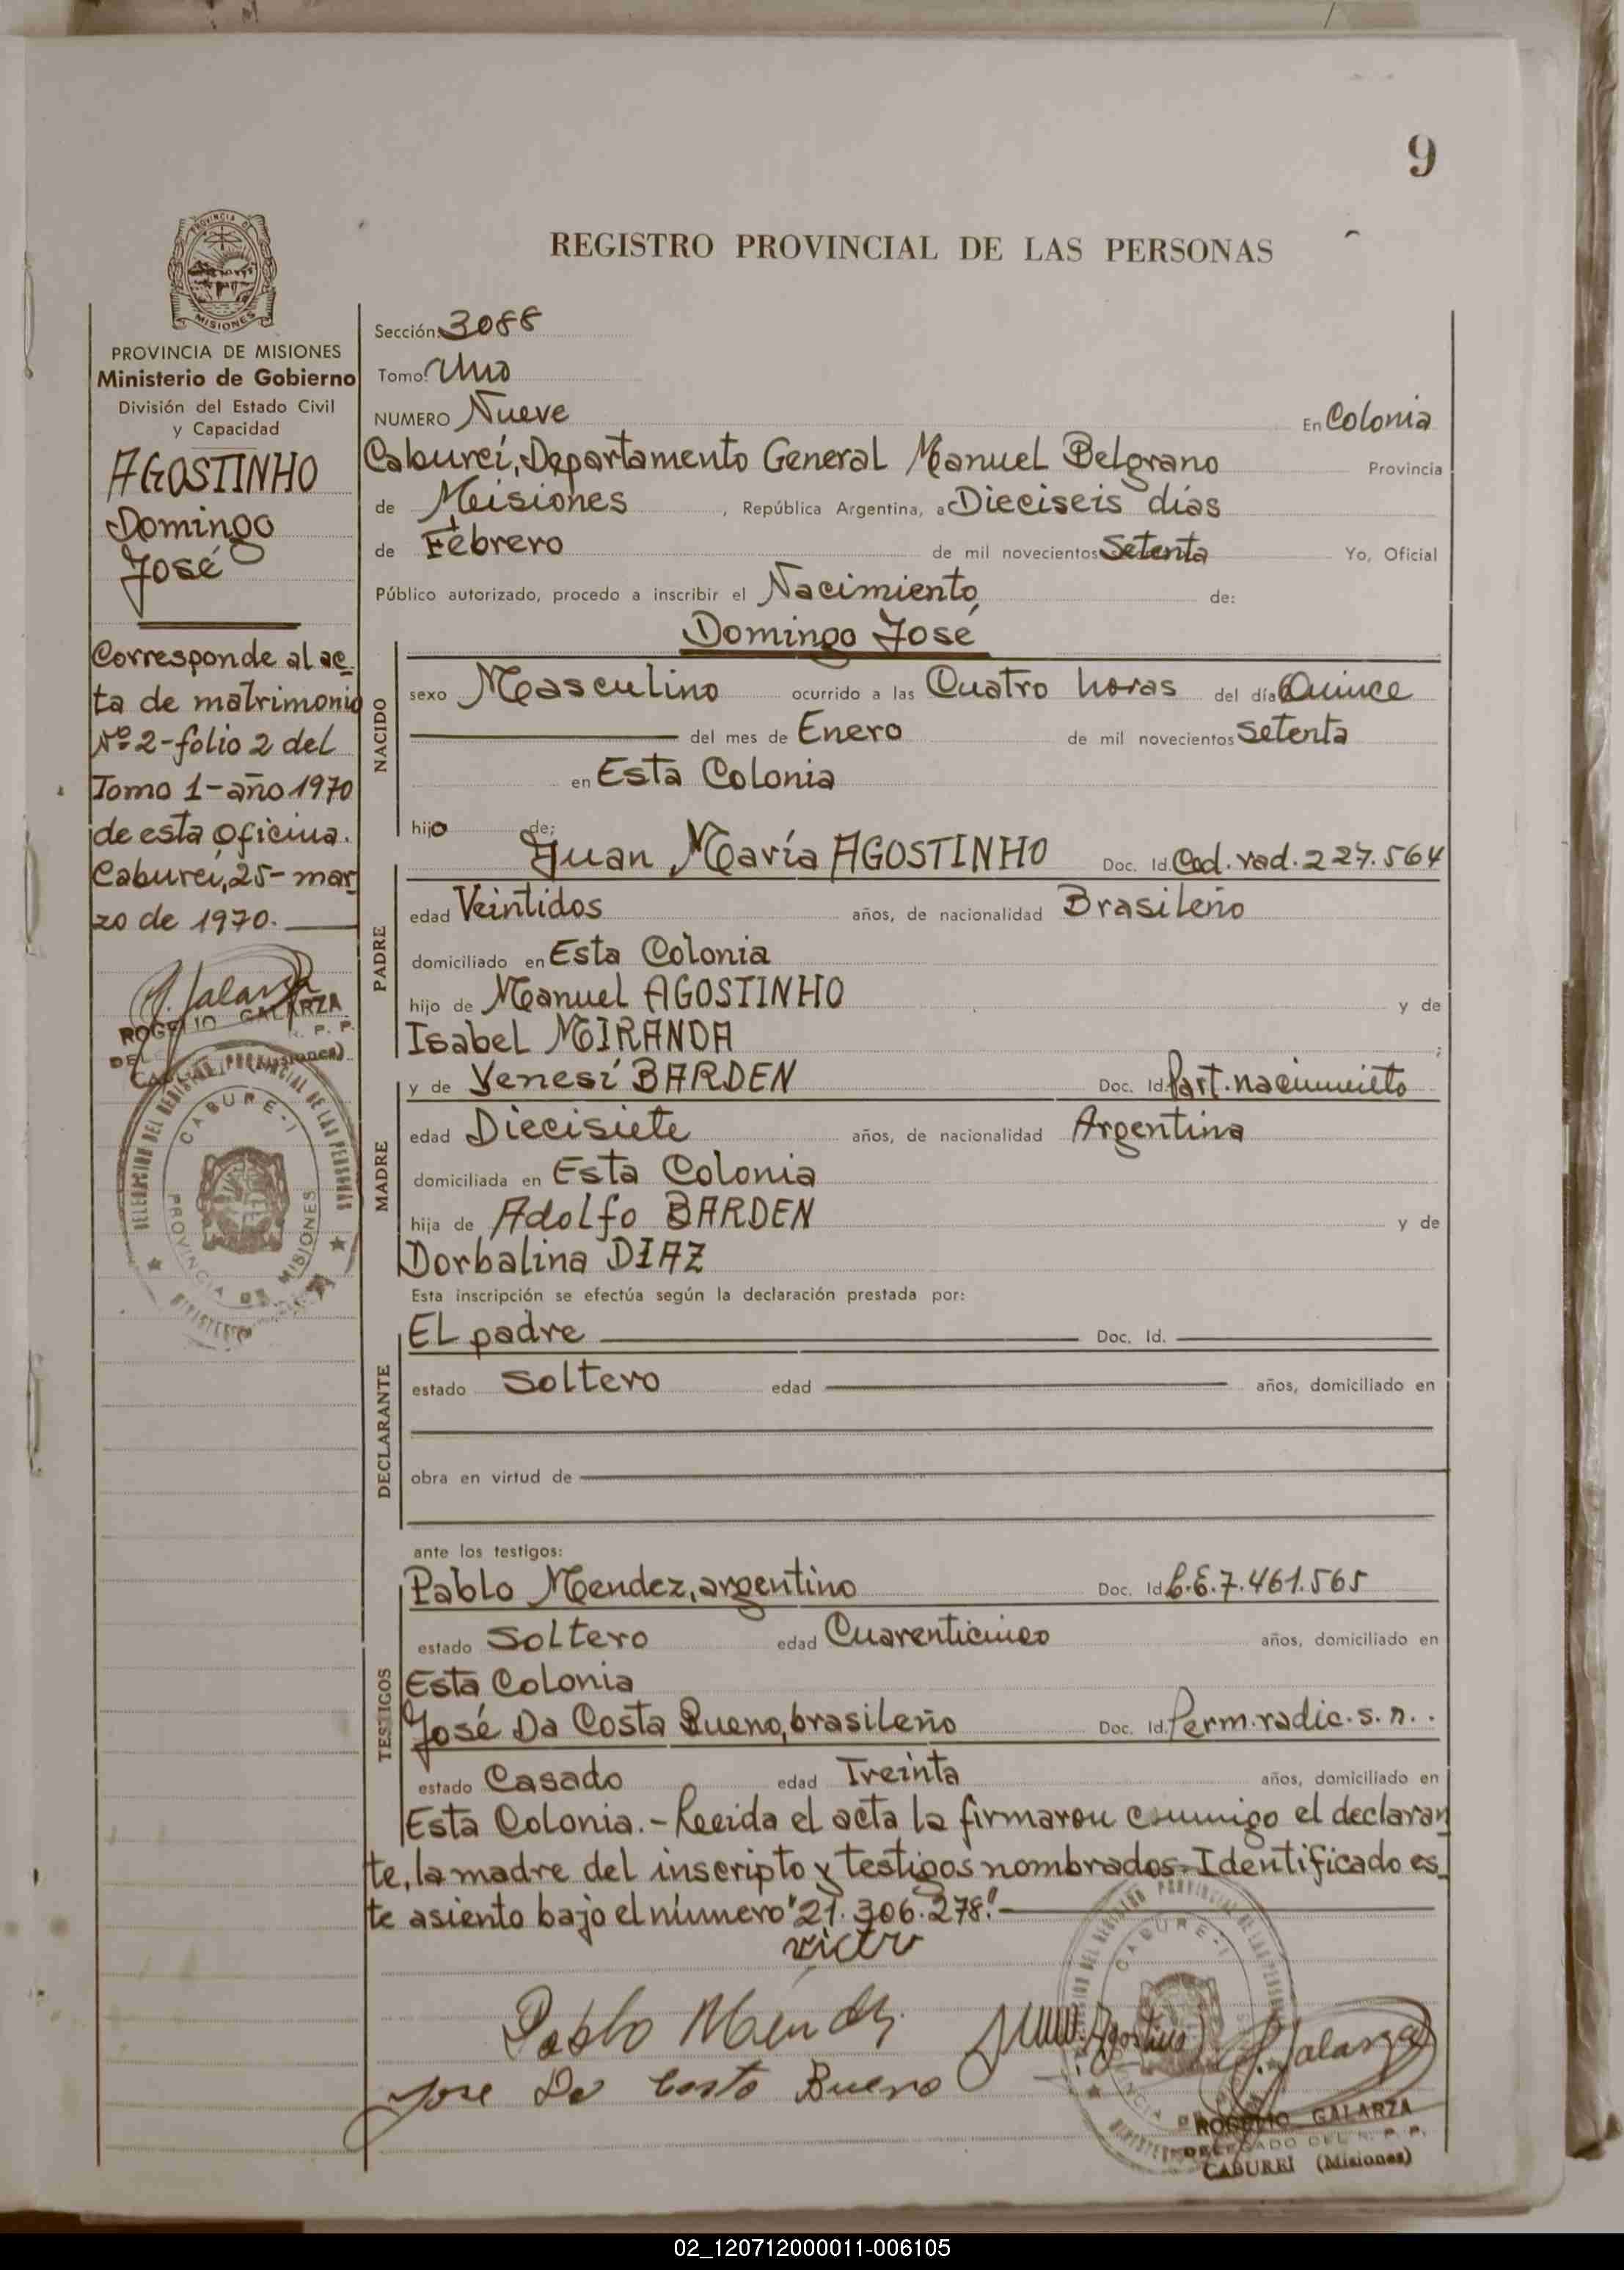 9
REGISTRO PROVINCIAL DE LAS PERSONAS
PROVINCIA DE MISIONES
Ministerio de Gobierno
División del Estado Civil
y Capacidad
AGOSTINHO
Domingo
José
Corresponde al ac
ta de matrimonio
Nº 2-folio 2 del
Tomo 1-año 1970
de esta oficina.
Cabureí, 25-mar
zo de 1970.
ROGELIO GALARZA
DELEGACION DEL REGISTRO PROVINCIAL DE LAS PERSONAS
CABURE-I
PROVINCIA DE MISIONES
Sección: 3088
Tomo: Uno
NUMERO Nueve En Colonia
Cabureí, Departamento General Manuel Belgrano Provincia
de Misiones, República Argentina, a Dieciseis días
de Febrero de mil novecientos Setenta Yo, Oficial
Público autorizado, procedo a inscribir el Nacimiento de:
Domingo José
NACIDO
sexo Masculino ocurrido a las Cuatro horas del día Quince
del mes de Enero de mil novecientos Setenta
en Esta Colonia
hijo de:
Juan María AGOSTINHO Doc. Id. Ced. rad. 227.564
PADRE
edad Veintidos años, de nacionalidad Brasileño
domiciliado en Esta Colonia
hijo de Manuel AGOSTINHO y de
Isabel MIRANDA ;
y de Yenesí BARDEN Doc. Id. Part. nacimiento
MADRE
edad Diecisiete años, de nacionalidad Argentina
domiciliada en Esta Colonia
hija de Adolfo BARDEN y de
Dorbalina DIAZ
Esta inscripción se efectúa según la declaración prestada por:
DECLARANTE
EL padre Doc. Id.
estado Soltero edad años, domiciliado en
obra en virtud de
ante los testigos:
TESTIGOS
Pablo Mendez, argentino Doc. Id. 7.461.565
estado Soltero edad Cuarenticinco años, domiciliado en
Esta Colonia
José Da Costa Bueno, brasileño Doc. Id. Perm. radic. s. n..
estado Casado edad Treinta años, domiciliado en
Esta Colonia.- Leeida el acta la firmaron conmigo el declaran
te, la madre del inscripto y testigos nombrados-Identificado es
te asiento bajo el número "21.306.278"
Pablo Mendez
Jose Da Costa Bueno
ROGELIO GALARZA
DELEGADO DEL R. P. P.
CABUREI (Misiones)
02_120712000011-006105